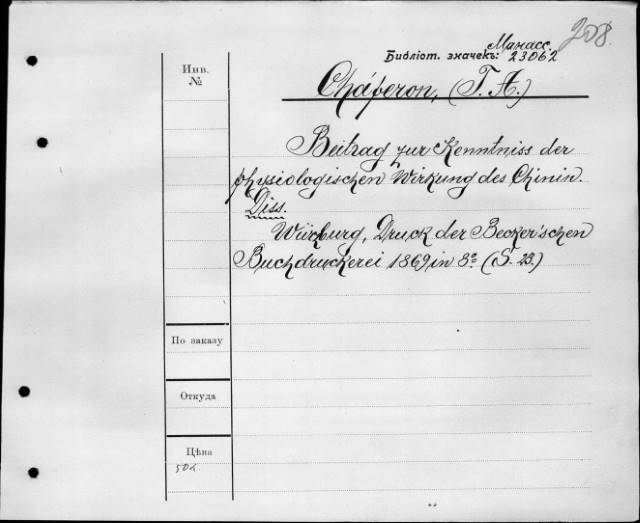 208.
Манасс.
Библіот. значекъ: 23062
Инв.
№
Cháperon, (T. A.)
Beitrag zur Kenntniss der
physiologischen Wirkung des Chinin.
Diss.
Würzburg, Druck der Becker'schen
Buchdruckerei 1869 in 8º (S. 23.)
По заказу
Откуда
Цѣна